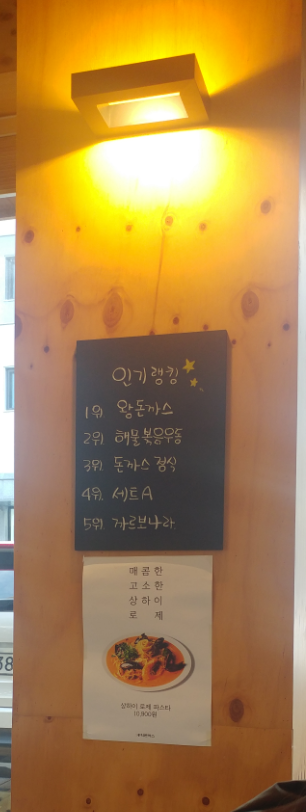 인기랭킹
1위 왕돈까스
2위 해물볶음우동
3위 돈까스 정식
4위 세트A
5위 까르보나라
매콤한
고소한
상하이
로제
상하이 로제 파스타